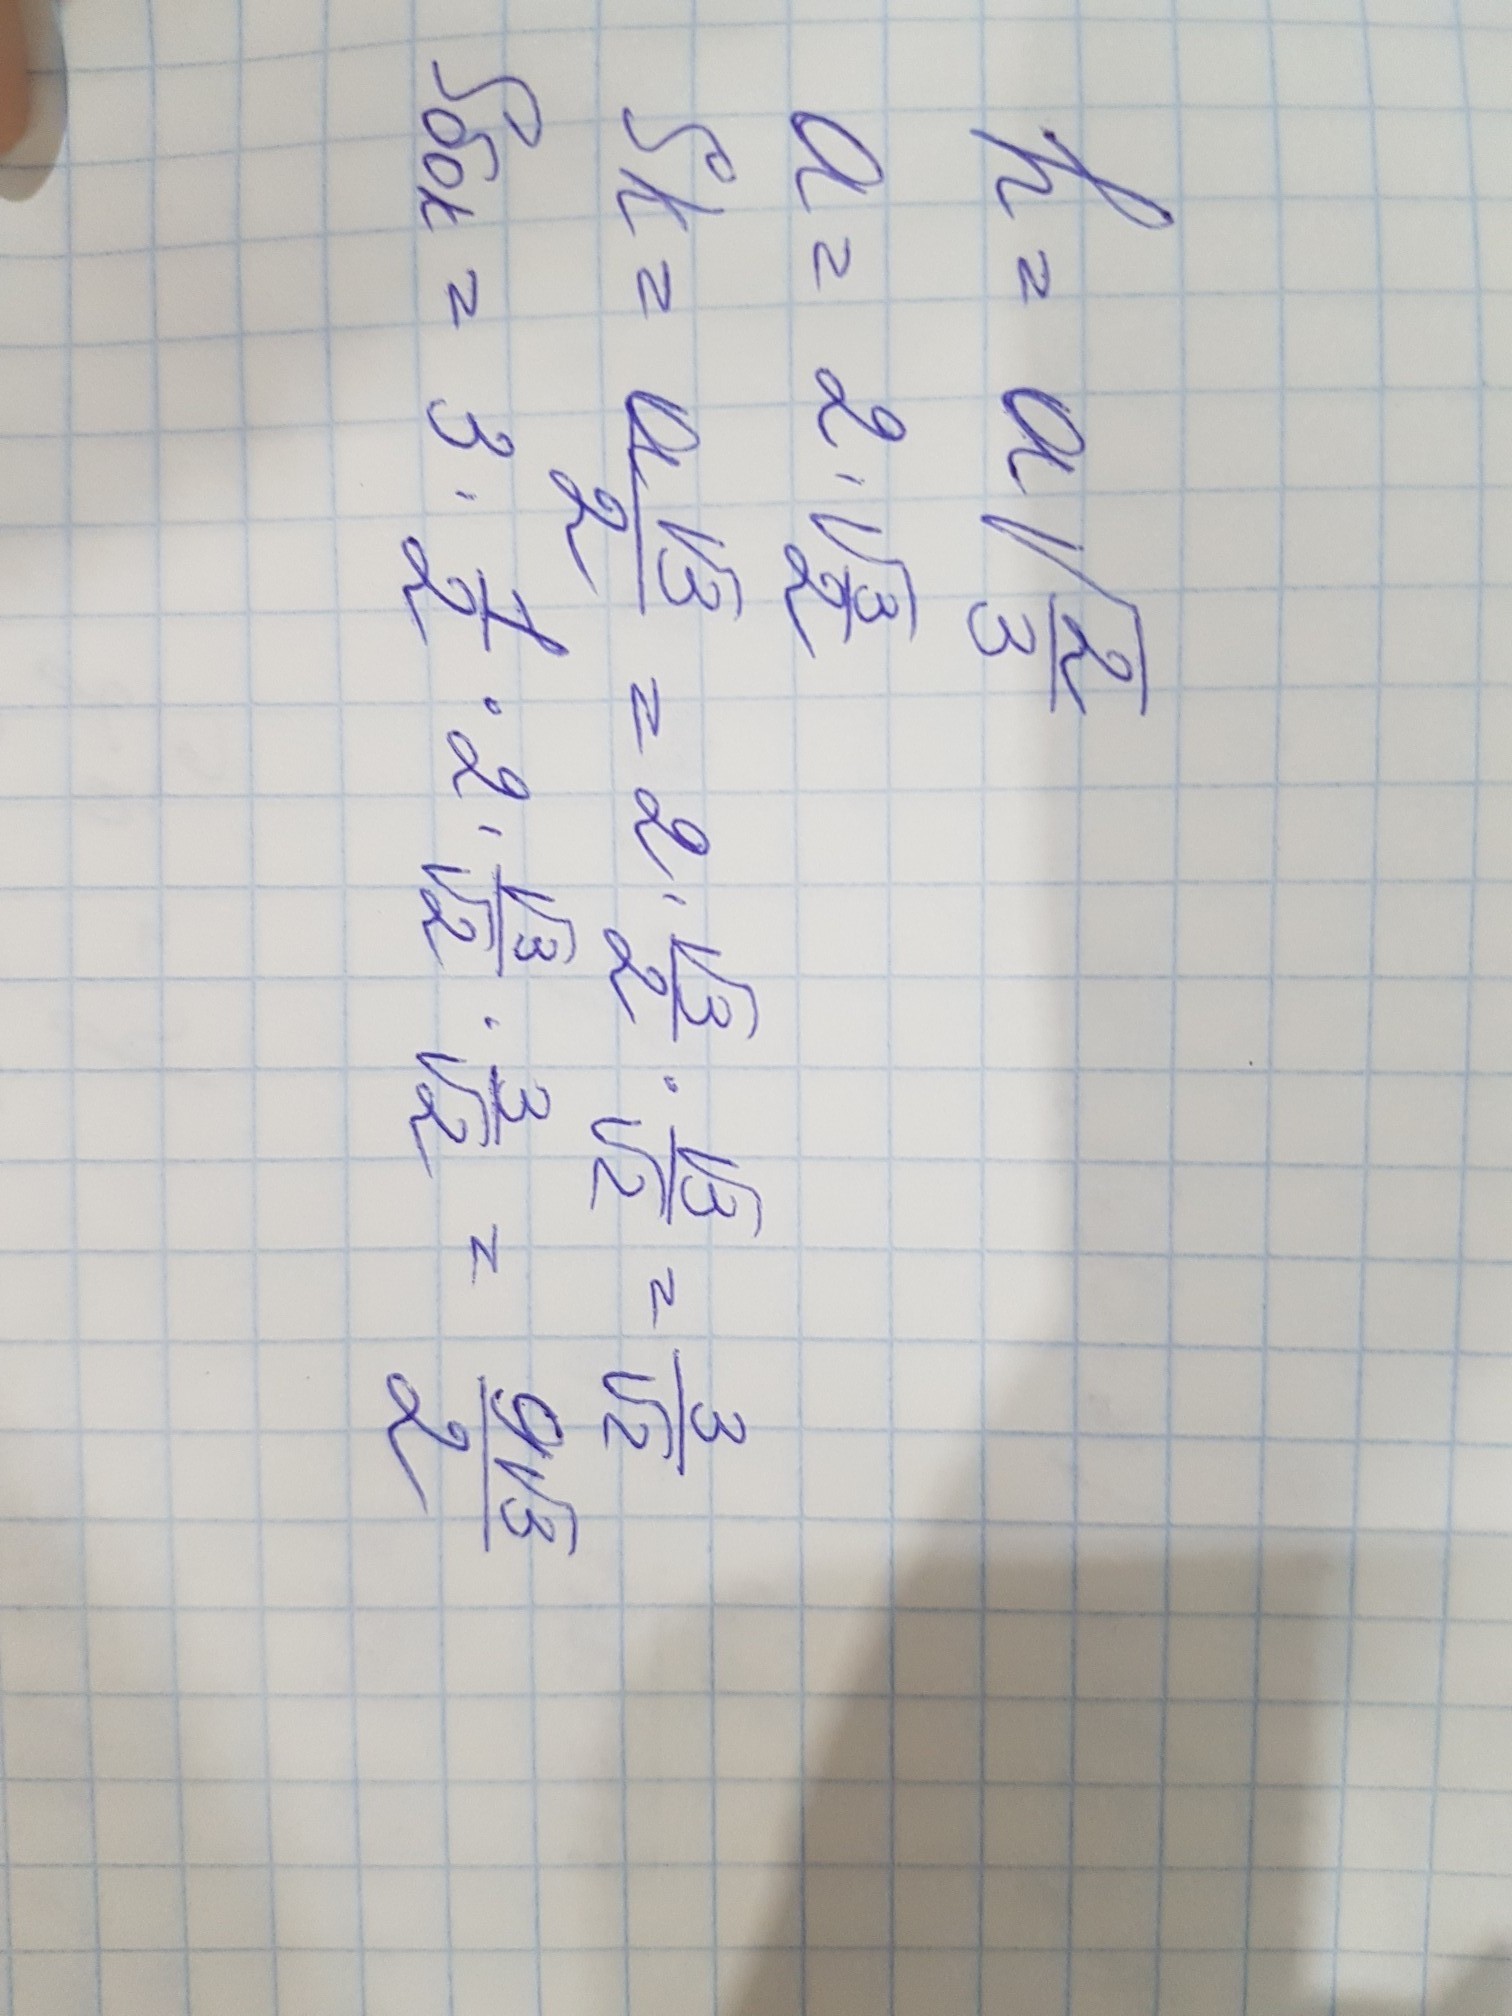 h = a√(2/3)
a = 2·√(3/2)
Sk = a√3/2 = 2·√3/2·√3/√2 = 3/√2
Sбок = 3·1/2·2·√3/√2·3/√2 = 9√3/2